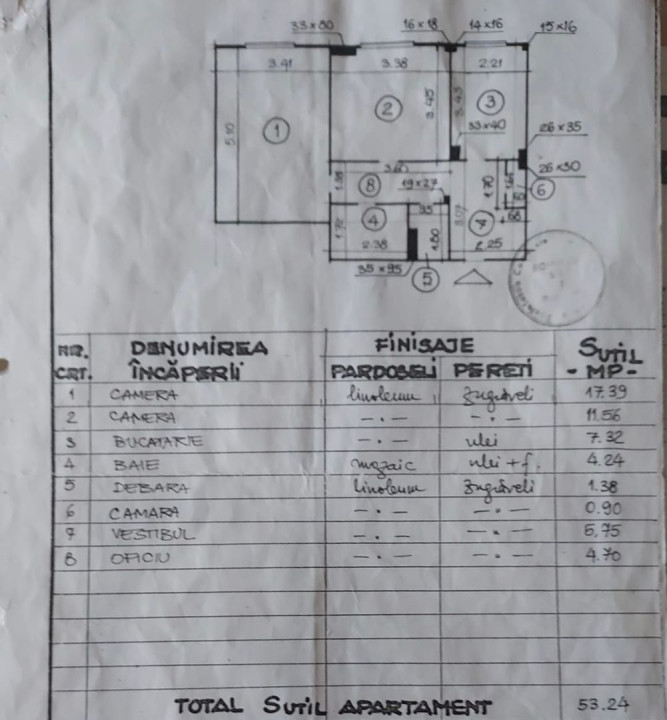 33×80 16×18 14×16 15×16
3.41 3.38 2.21
5.10 1 2 3.45 3.43 3
33×40 26×35
3.60 26×30
1.38 8 19×27 1.70 6
4 95 3.07 7 68
1.72 2.38 1.80 2.25
35×95 5
NR. CRT. DENUMIREA ÎNCĂPERII FINISAJE SUTIL
PARDOSELI PERETI - MP -
1 CAMERA linoleum zugrăveli 17.39
2 CAMERA — · — — · — 11.56
3 BUCATARIE — · — ulei 7.32
4 BAIE mozaic ulei + f. 4.24
5 DEBARA linoleum zugrăveli 1.38
6 CAMARA — · — — · — 0.90
7 VESTIBUL — · — — · — 5,75
8 OFICIU — · — — · — 4.70
TOTAL SUTIL APARTAMENT 53.24